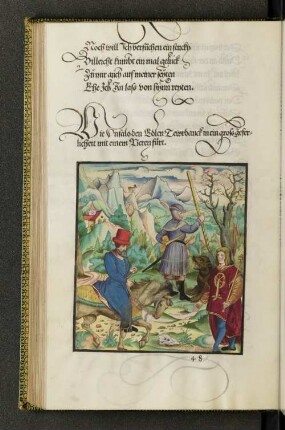 Noch will Ich versuchen ein stuckh
Villeicht kumbt ein mal geluck
Zu mir auch auf meiner seyten
Ehe Ich In lass von hynn reyten.
Wie Unfalo den Edlen Tewrdannck in ein gross gefer-
licheit mit einem Beren fürt.
48